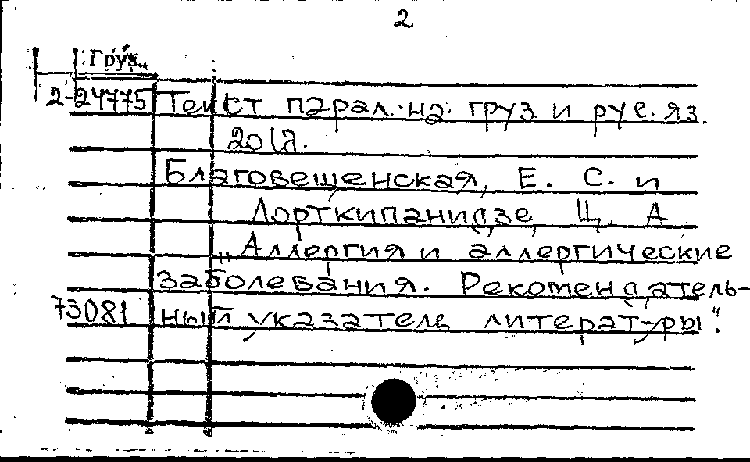 2
Груз.
2-24775 Текст парал. на груз и рус. яз.
Благовещенская, Е. С. и
Лорткипанидзе, Ц. А
„Аллергия и аллергические
заболевания. Рекомендатель-
73081 ный указатель литературы“.